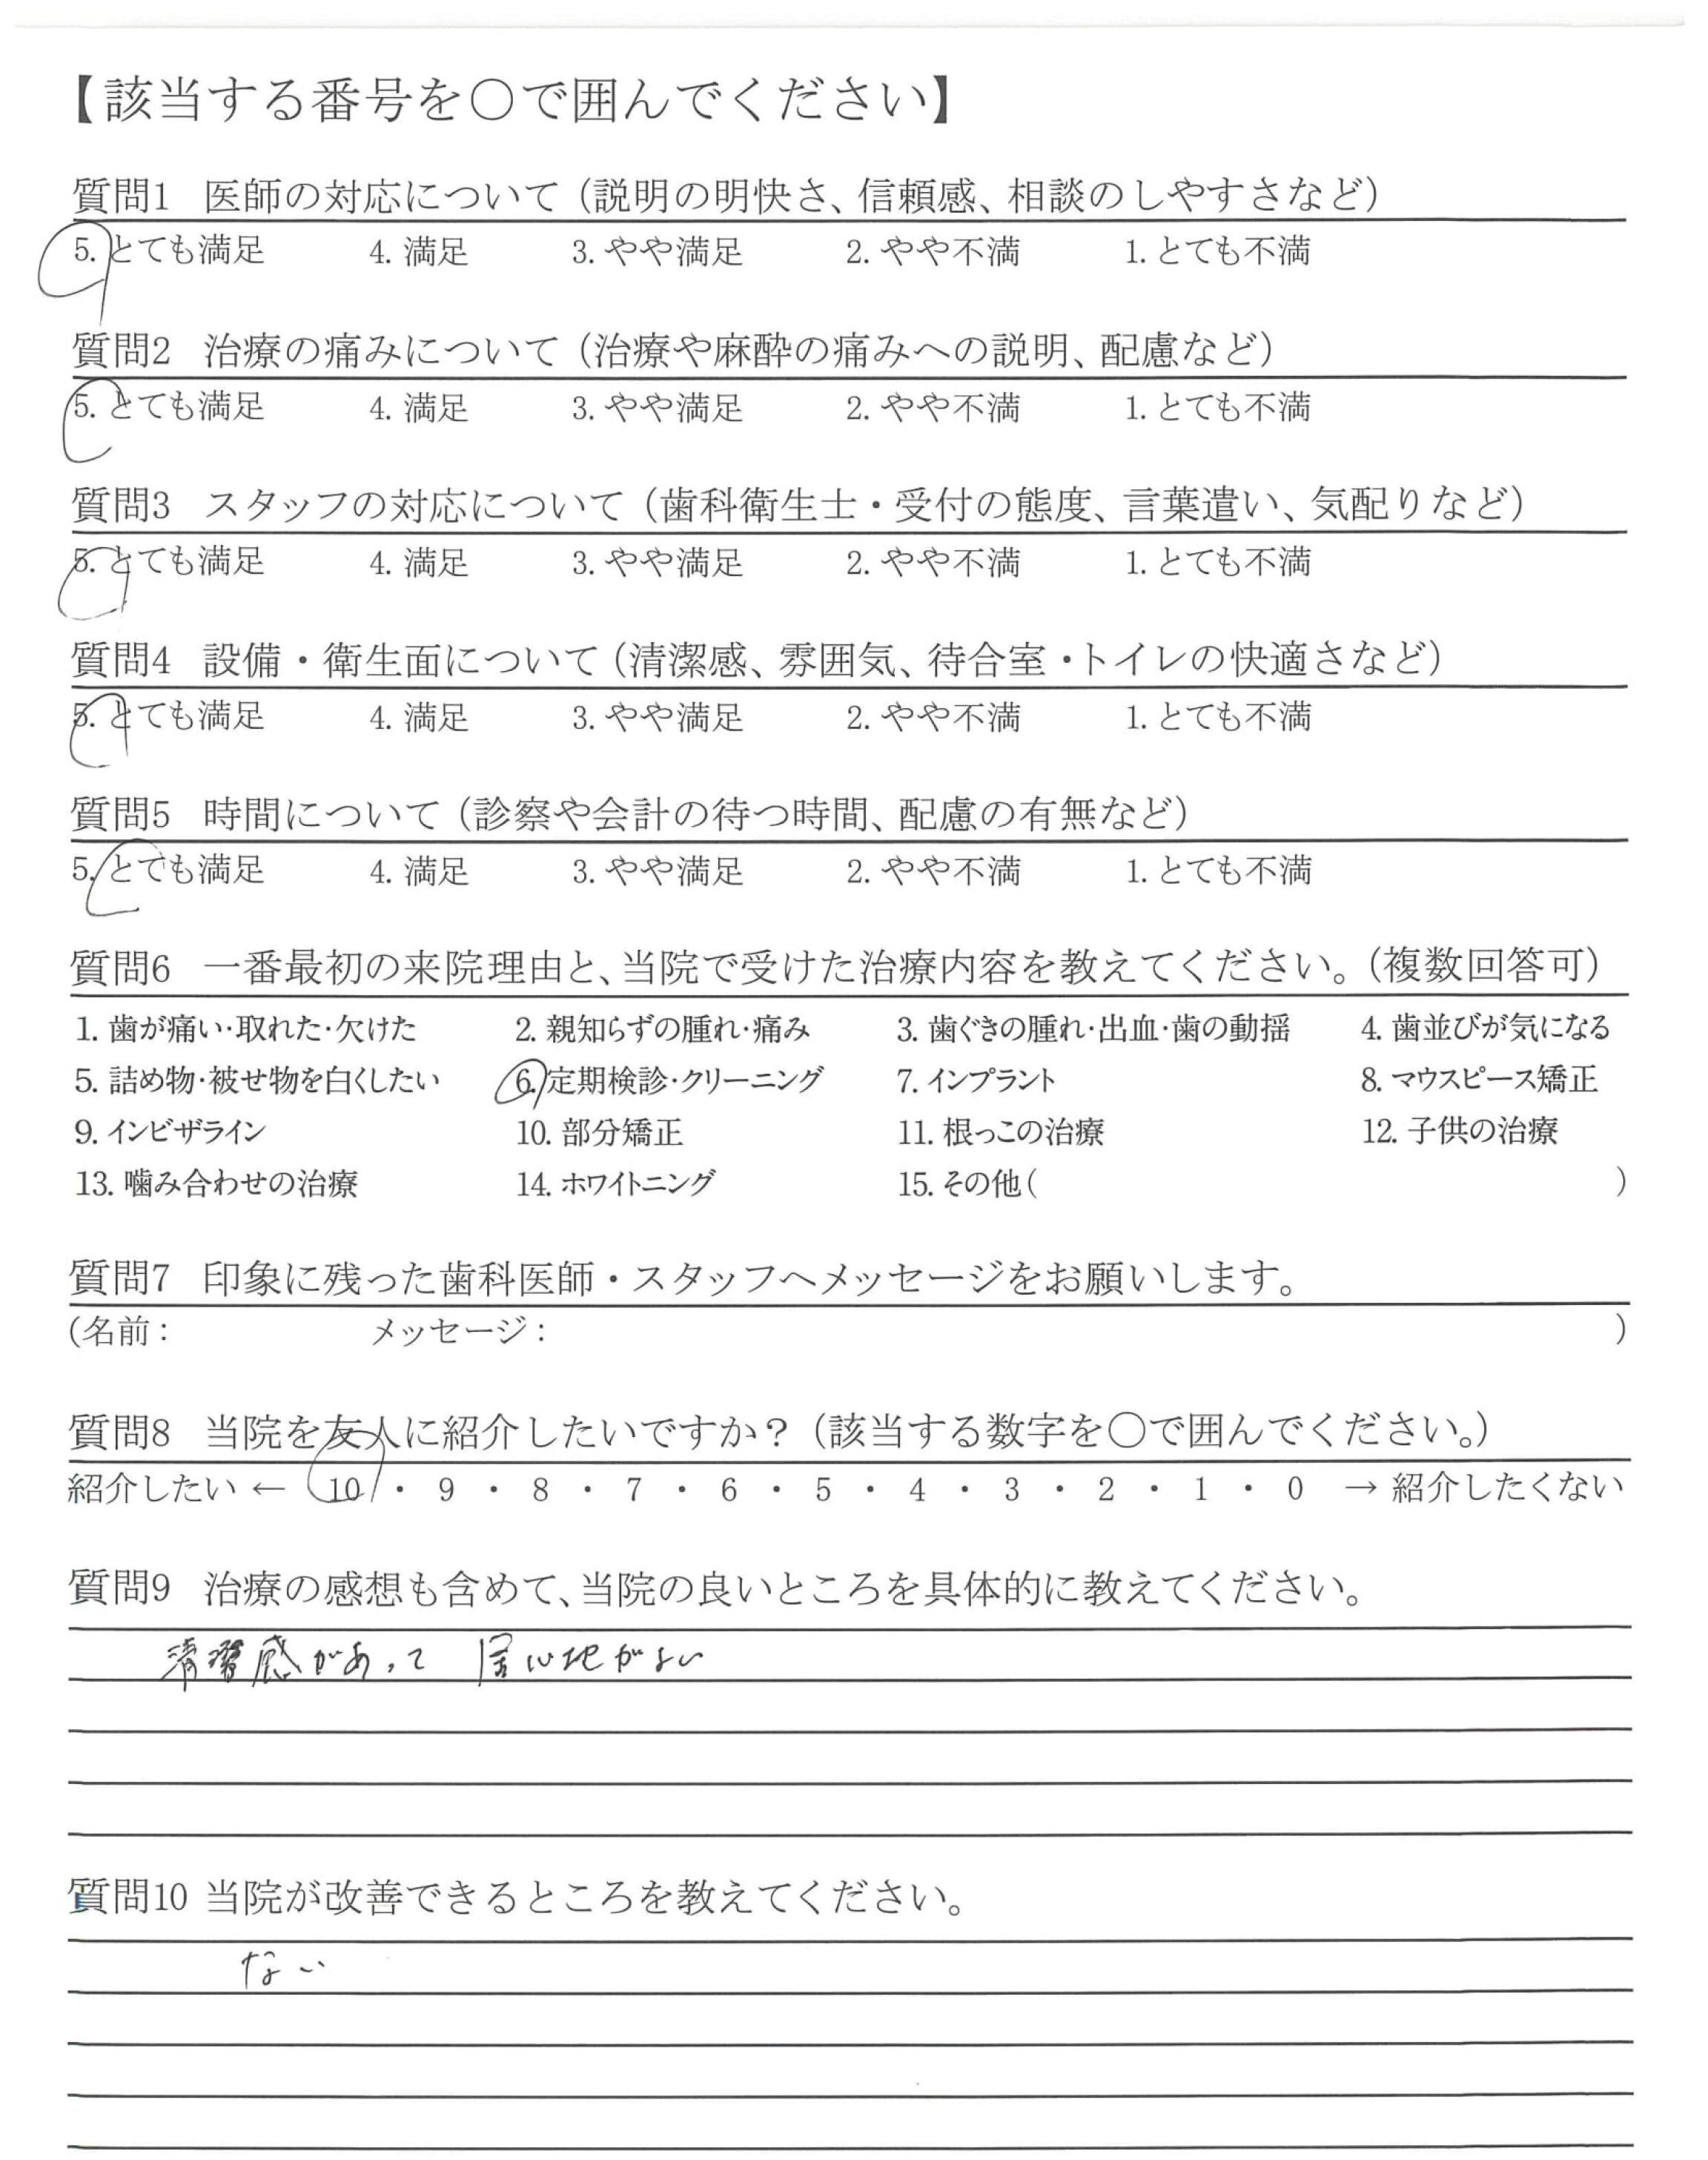 【該当する番号を〇で囲んでください】
質問1 医師の対応について（説明の明快さ、信頼感、相談のしやすさなど）
5. とても満足 4. 満足 3. やや満足 2. やや不満 1. とても不満
質問2 治療の痛みについて（治療や麻酔の痛みへの説明、配慮など）
5. とても満足 4. 満足 3. やや満足 2. やや不満 1. とても不満
質問3 スタッフの対応について（歯科衛生士・受付の態度、言葉遣い、気配りなど）
5. とても満足 4. 満足 3. やや満足 2. やや不満 1. とても不満
質問4 設備・衛生面について（清潔感、雰囲気、待合室・トイレの快適さなど）
5. とても満足 4. 満足 3. やや満足 2. やや不満 1. とても不満
質問5 時間について（診察や会計の待つ時間、配慮の有無など）
5. とても満足 4. 満足 3. やや満足 2. やや不満 1. とても不満
質問6 一番最初の来院理由と、当院で受けた治療内容を教えてください。（複数回答可）
1. 歯が痛い・取れた・欠けた 2. 親知らずの腫れ・痛み 3. 歯ぐきの腫れ・出血・歯の動揺 4. 歯並びが気になる
5. 詰め物・被せ物を白くしたい 6. 定期検診・クリーニング 7. インプラント 8. マウスピース矯正
9. インビザライン 10. 部分矯正 11. 根っこの治療 12. 子供の治療
13. 噛み合わせの治療 14. ホワイトニング 15. その他（ ）
質問7 印象に残った歯科医師・スタッフへメッセージをお願いします。
（名前： メッセージ： ）
質問8 当院を友人に紹介したいですか？（該当する数字を〇で囲んでください。）
紹介したい ← 10 ・ 9 ・ 8 ・ 7 ・ 6 ・ 5 ・ 4 ・ 3 ・ 2 ・ 1 ・ 0 → 紹介したくない
質問9 治療の感想も含めて、当院の良いところを具体的に教えてください。
清潔感があって 居心地がよい
質問10 当院が改善できるところを教えてください。
ない